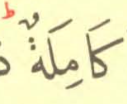 كَامِلَةٌ